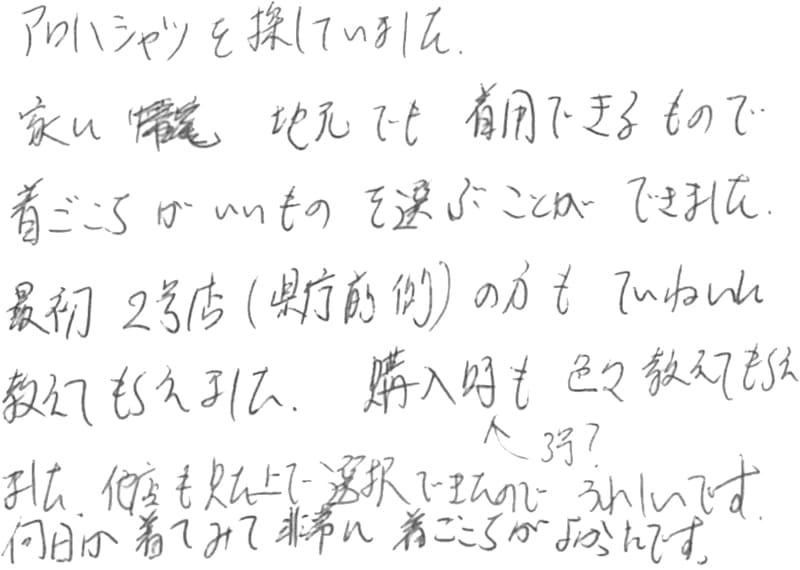 アロハシャツを探していました.
家に 地元でも 着用できるもので
着ごこちがいいものを選ぶことができました.
最初 2号店(県庁前側)の方も ていねいに
教えてもらえました. 購入時も 色々教えてもらえ
↖ 3号?
ました. 他店も見た上で選択できたので うれしいです.
何日か着てみて非常に着ごこちがよかったです。